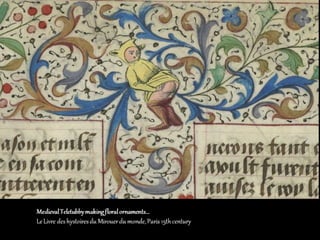 ason et mist
en sa com
ntirerent en
nerons tant
auoult furent
auisez le roy
Medieval Teletubby making floral ornaments...
Le Livre des hystoires du Mirouer du monde, Paris 15th century